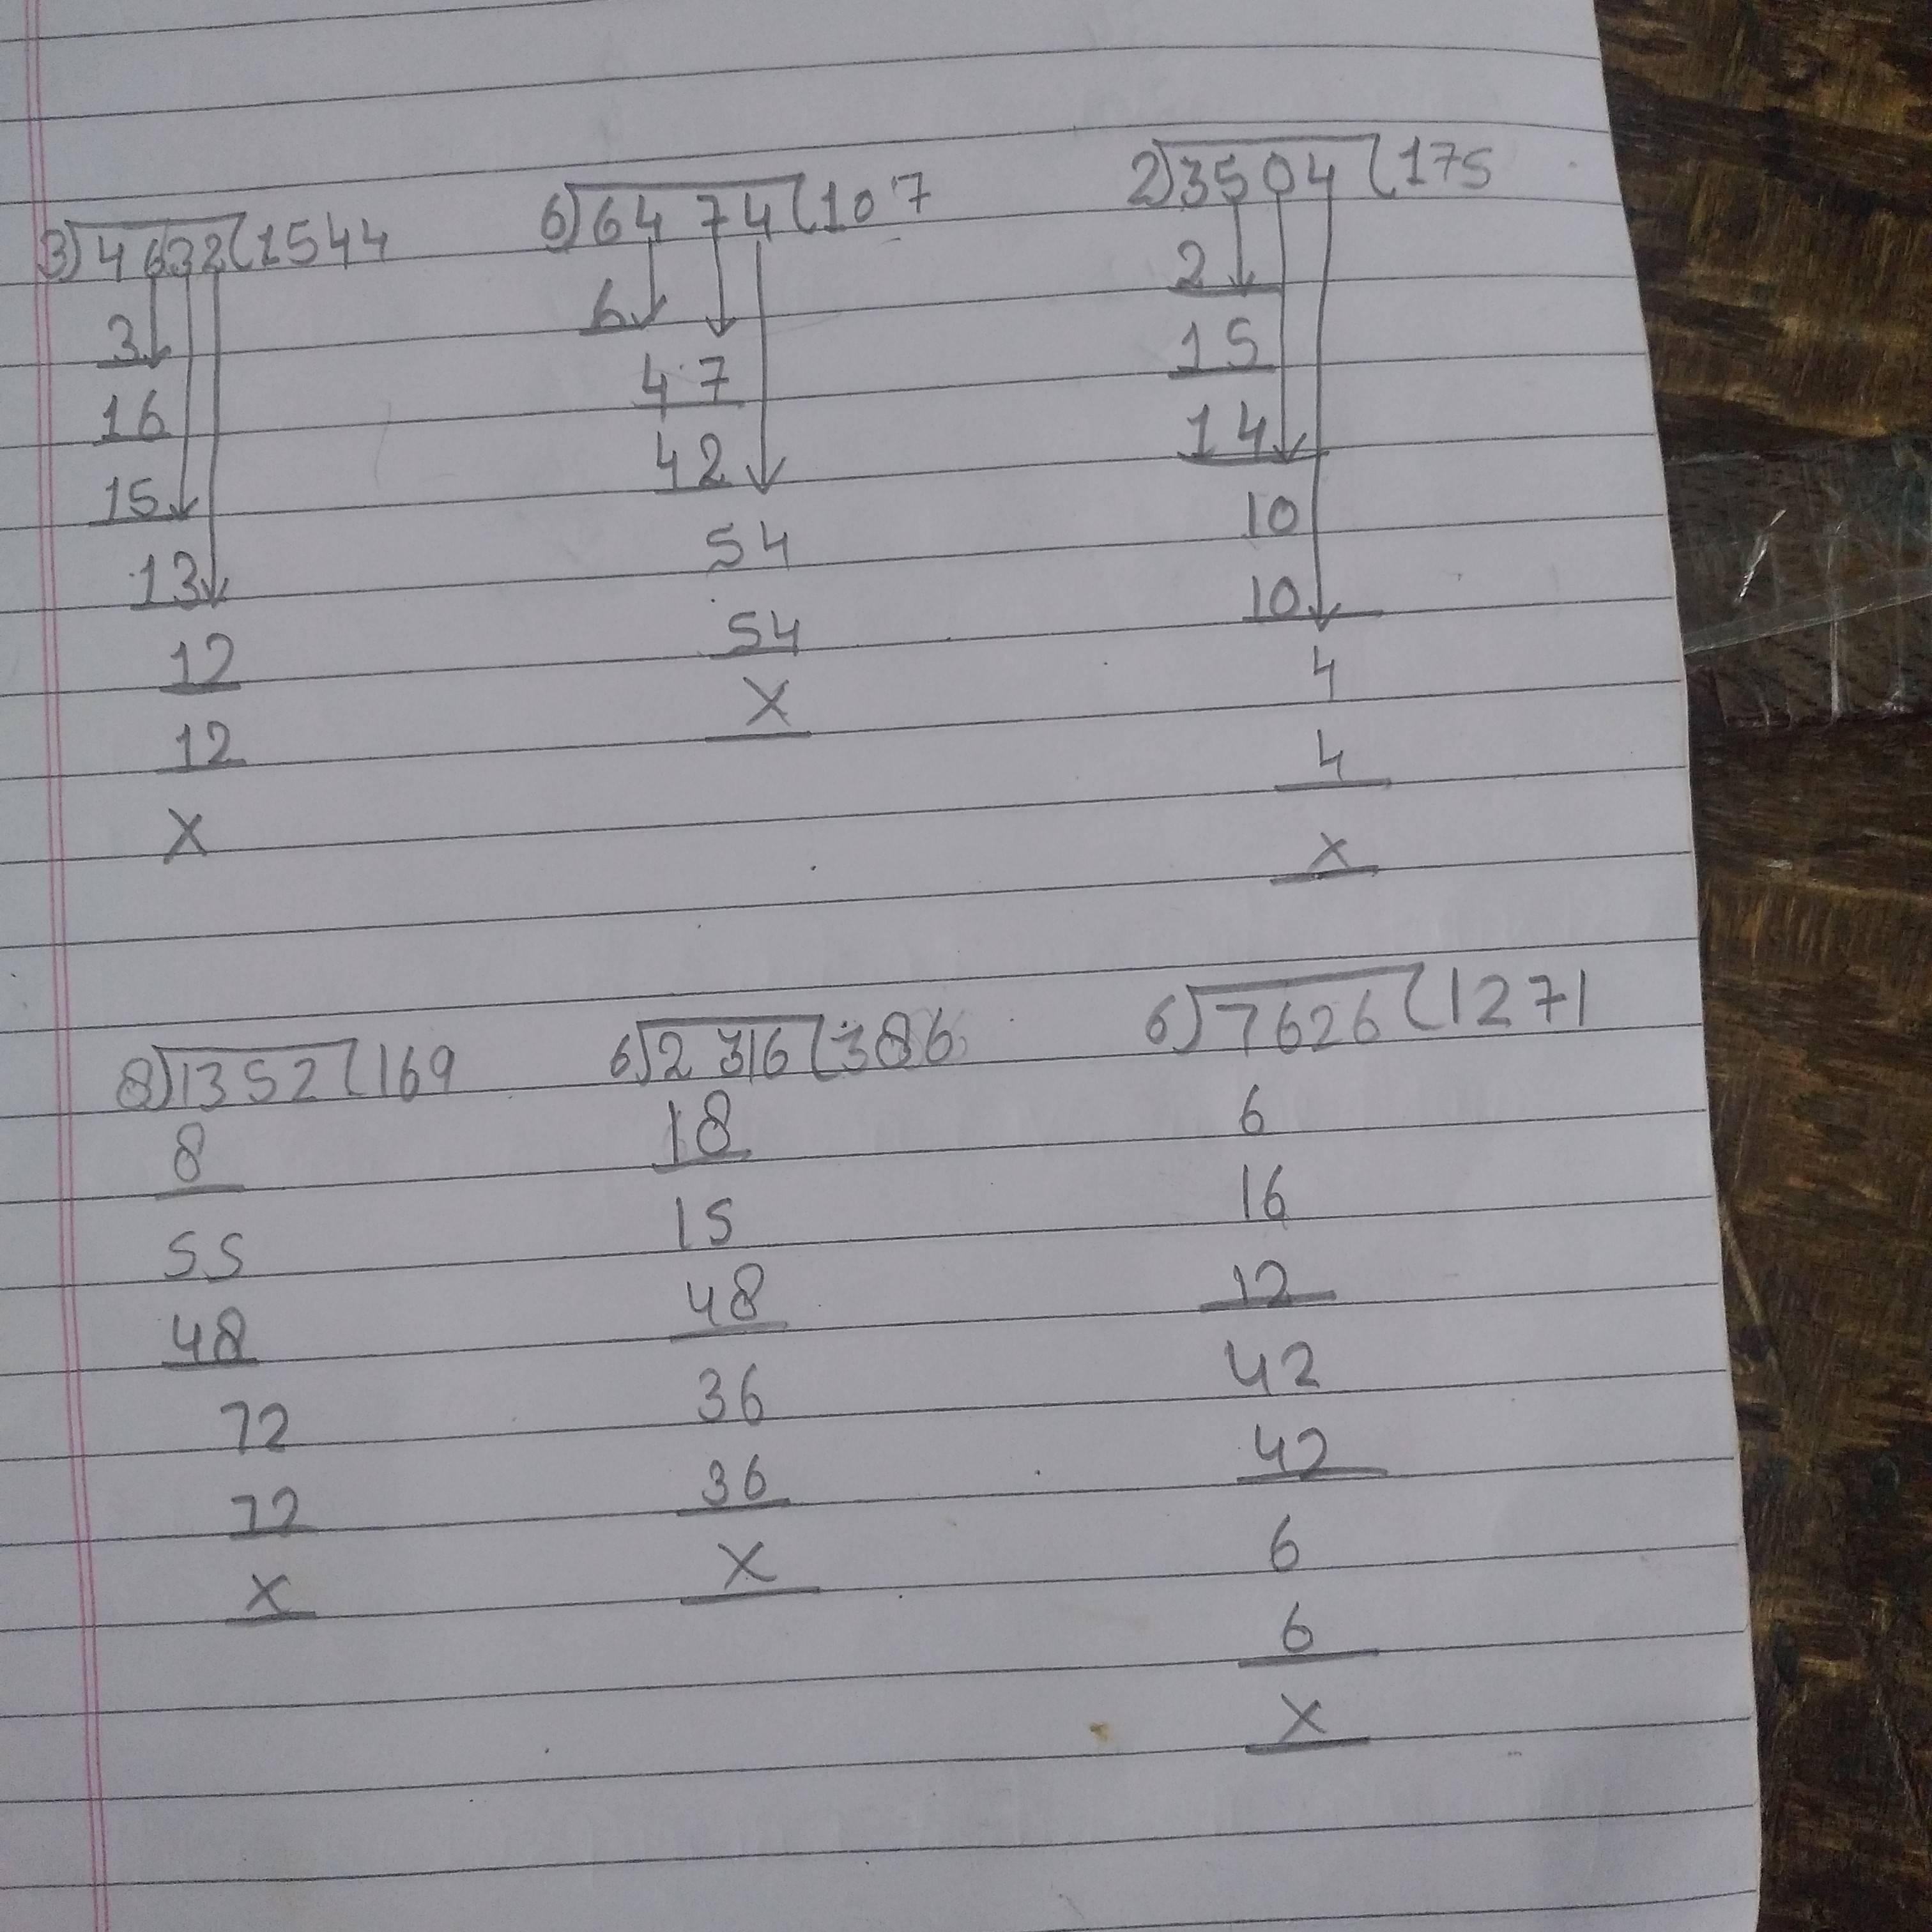 3)4632(1544
3
16
15
13
12
12
X
6)6474(107
6
47
42
54
54
X
2)3504(175
2
15
14
10
10
4
4
X
8)1352(169
8
55
48
72
72
X
6)2316(386
18
15
48
36
36
X
6)7626(1271
6
16
12
42
42
6
6
X